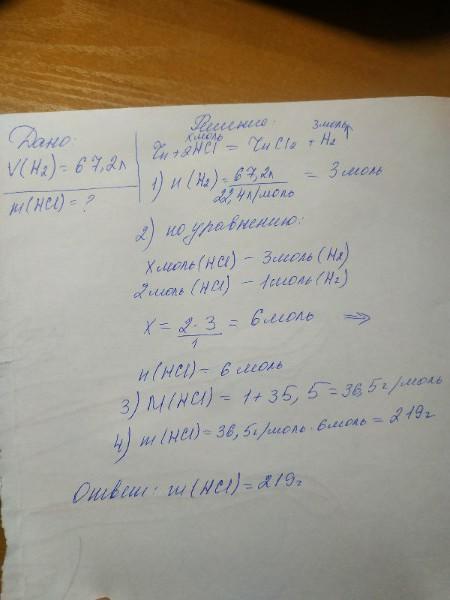 Дано:
V(H₂) = 67,2л
m(HCl) = ?
Решение:
x моль 3 моль
Zn + 2HCl = ZnCl₂ + H₂
1) n(H₂) = 67,2л / 22,4л/моль = 3 моль
2) по уравнению:
x моль (HCl) – 3 моль (H₂)
2 моль (HCl) – 1 моль (H₂)
x = 2·3 / 1 = 6 моль ⇒
n(HCl) = 6 моль
3) M(HCl) = 1 + 35,5 = 36,5 г/моль
4) m(HCl) = 36,5 г/моль · 6 моль = 219 г
Ответ: m(HCl) = 219 г